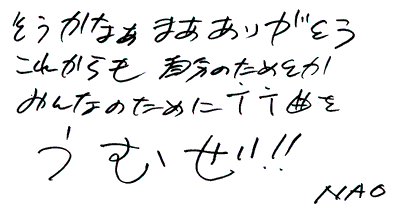 そうかなぁ まあありがとう
これからも 自分のためとか
みんなのために 曲を
うむぜ!!
NAO